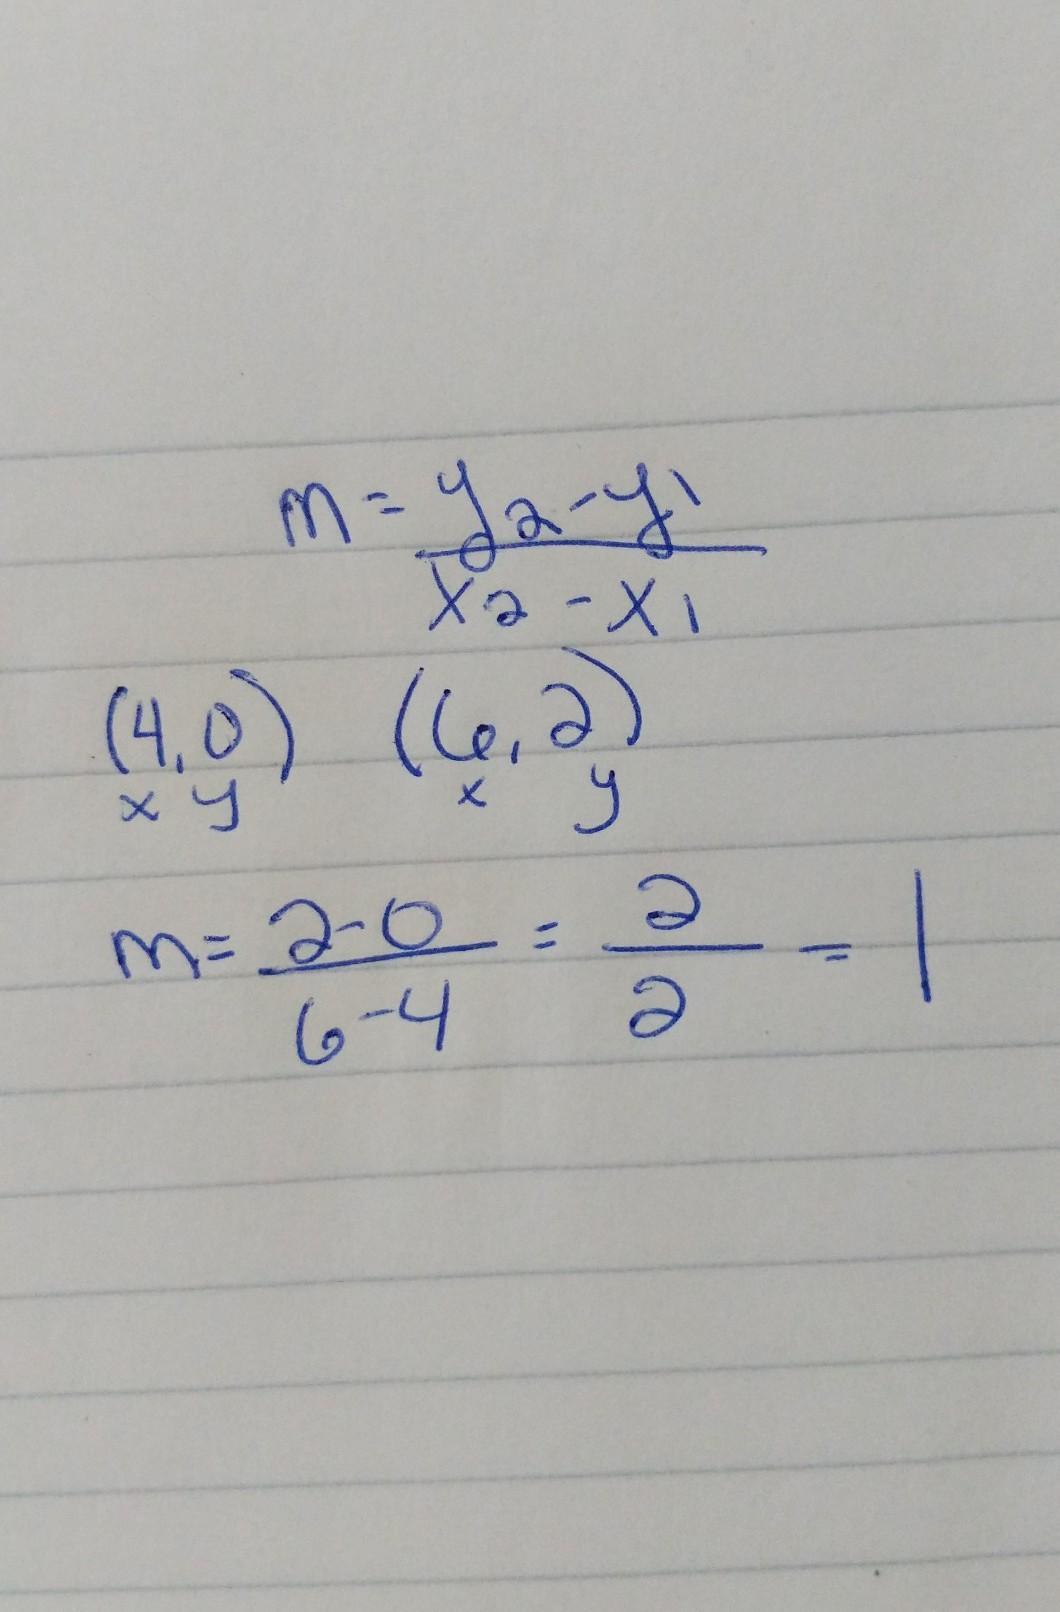 m = y2 - y1
x2 - x1
(4,0) (6,2)
x y x y
m = 2-0 = 2 = 1
6-4 2